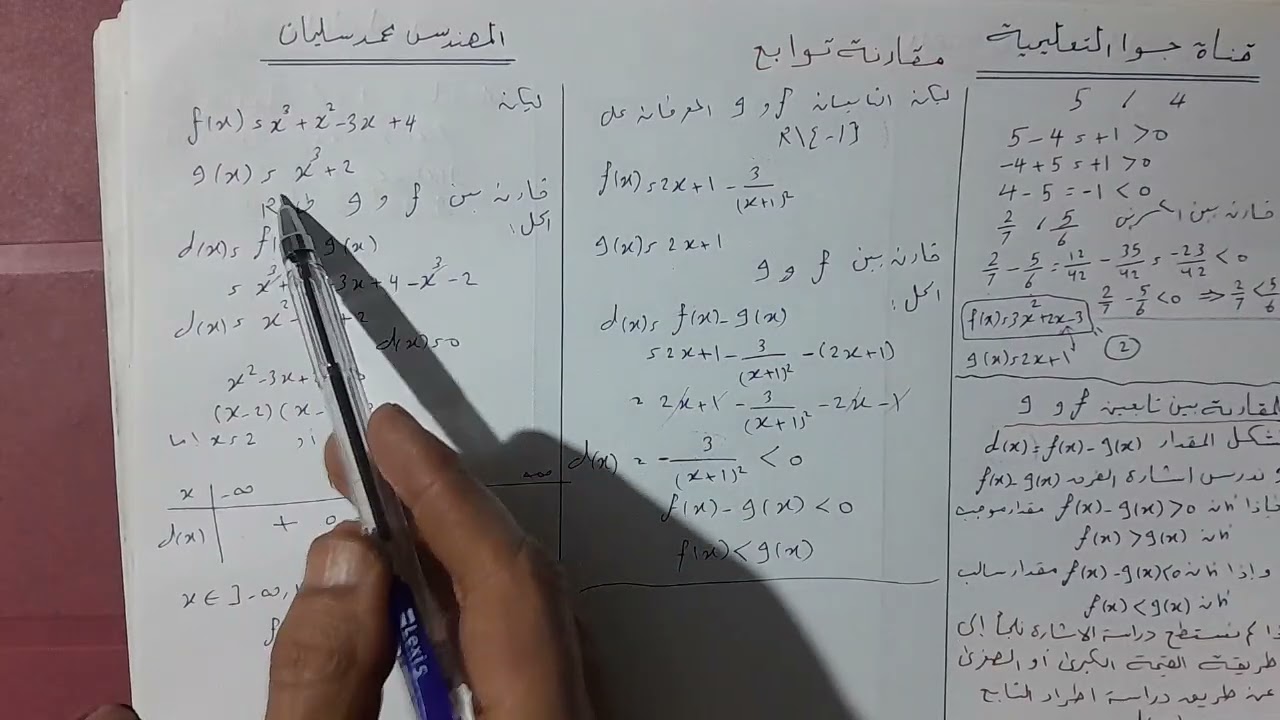 قناة جوا التعليمية
5 / 4
5 - 4 = +1 > 0
-4 + 5 = +1 > 0
4 - 5 = -1 < 0
قارن بين الكسرين
2/7 , 5/6
2/7 - 5/6 = 12/42 - 35/42 = -23/42 < 0
2/7 - 5/6 < 0 ⇒ 2/7 < 5/6
f(x) = 3x² + 2x - 3
g(x) = 2x + 1
2
المقارنة بين تابعين f و g
شكل المقدار d(x) = f(x) - g(x)
و ندرس اشارة الفرق f(x) - g(x)
فإذا كان f(x) - g(x) > 0 مقدار موجب
كان f(x) > g(x)
وإذا كان f(x) - g(x) < 0 مقدار سالب
كان f(x) < g(x)
لم نستطع دراسة الاشارة نلجأ إلى
طريقة القيمة الكبرى أو الصغرى
عن طريق دراسة اطراد التابع
مقارنة توابع
ليكن التابعان f و g المعرفان على
R\{-1}
f(x) = 2x + 1 - 3/(x+1)²
g(x) = 2x + 1
قارن بين f و g
الحل:
d(x) = f(x) - g(x)
= 2x + 1 - 3/(x+1)² - (2x+1)
= 2x + 1 - 3/(x+1)² - 2x - 1
d(x) = - 3/(x+1)² < 0
f(x) - g(x) < 0
f(x) < g(x)
المهندس محمد سليمان
ليكن
f(x) = x³ + x² - 3x + 4
g(x) = x³ + 2
قارن بين f و g
الحل:
d(x) = f(x) g(x)
= x³ + 3x + 4 - x³ - 2
d(x) = x² - + 2
d(x) = 0
x² - 3x +
(x-2)(x-
x = 2
x -∞ +∞
d(x) + 0
x ∈ ]-∞,
f
Lexis